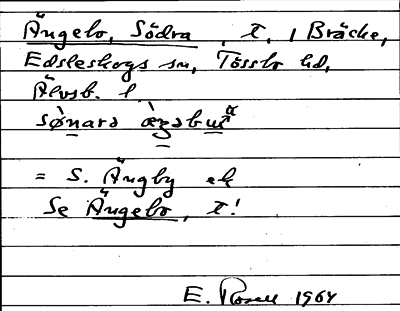 Ängebo, Södra, t. i Bräcke,
Edsleskogs sn, Tössbo hd,
Älvsb. l
sø̀nara æ̀gabua
= S. Ängby ek
Se Ängebo, t!
E. Rosell 1964